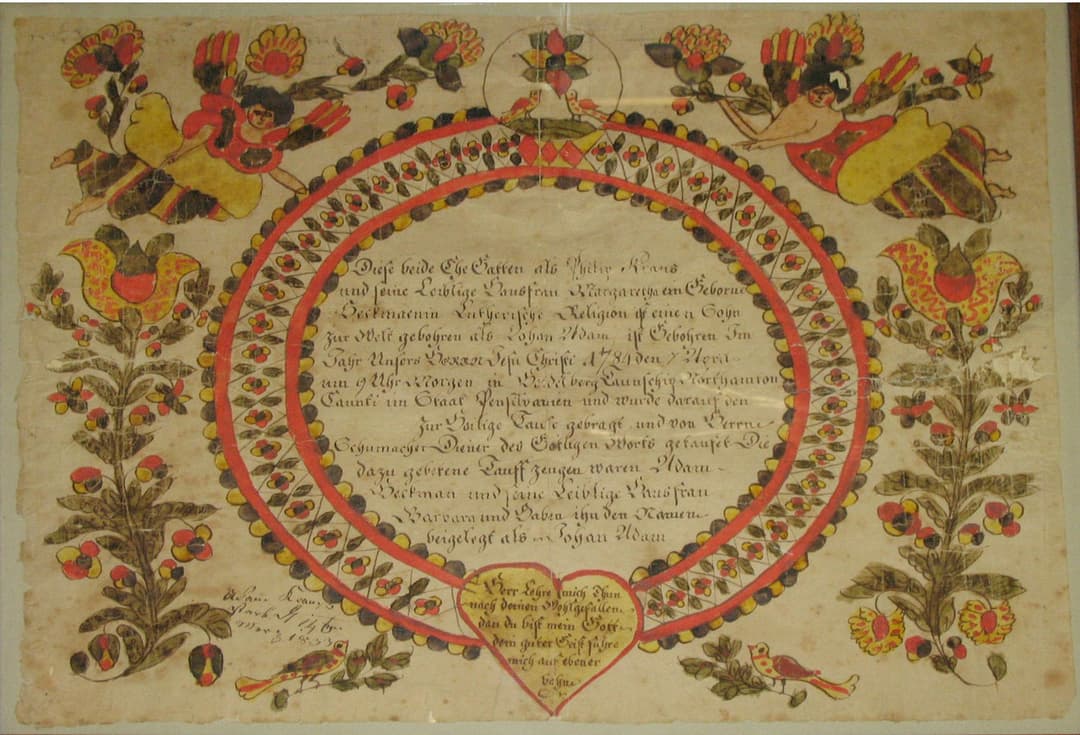 Diese beide Ehe Gatten als Philip Kraus
und seine Leiblige Hausfrau Margaretha ein Geborne
Beckmaenin Lutherische Religion ist einen Sohn
zur Welt gebohren als Johan Adam ist Gebohren Im
Jahr Unsers Herrn Jesu Christi 1784 den 7 April
um 9 Uhr Morgen in Township Northamton
Caunti im Staat Pensilvanien und wurde darauf den
zur Heilige Taufe gebragt und von Herrn
Schumacher Diener des Gottligen Worts getauft Die
dazu gebetene Tauff zeugen waren Adam
Beckman und seine Leiblige Hausfrau
Barbara und Haben ihn den Namen
beigelegt als Johan Adam
Herr Lehre mich Thun
nach deinen Wohlgefallen
dan du bist mein Gott
dein guter Geist führe
mich auf ebener
bahn
Adam Kraus